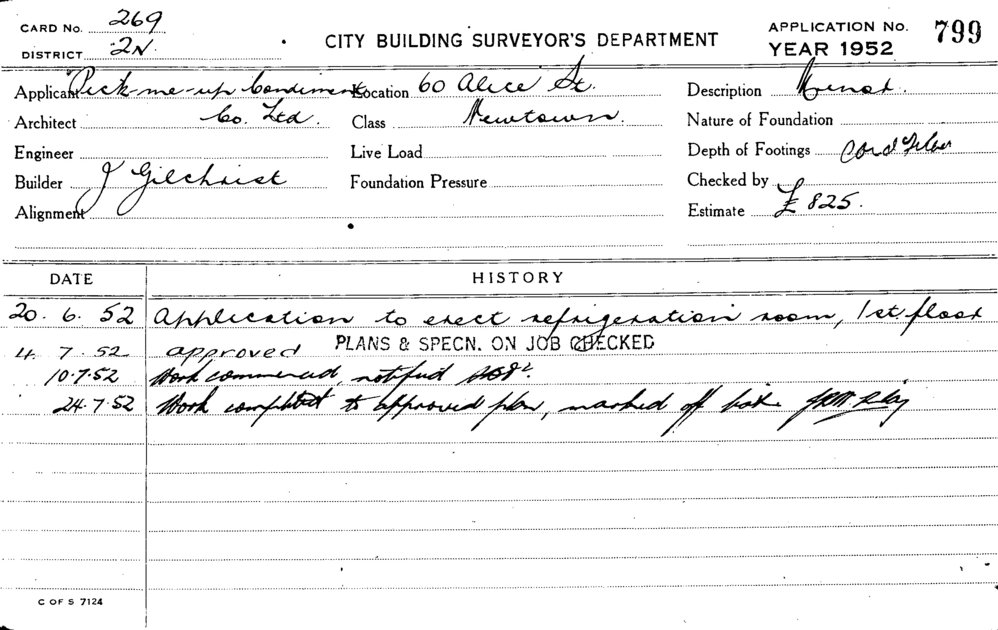 CARD No. 269
DISTRICT 2N.
CITY BUILDING SURVEYOR'S DEPARTMENT
APPLICATION No. 799
YEAR 1952
Applicant Pick-me-up Condiment
Co. Ltd.
Location 60 Alice St.
Description Minor.
Architect
Class Newtown.
Nature of Foundation
Engineer
Live Load
Depth of Footings
Builder J Gilchrist
Foundation Pressure
Checked by
Alignment
Estimate £825.
DATE
HISTORY
20. 6. 52 Application to erect refrigeration room, 1st floor
4. 7. 52 approved PLANS & SPECN. ON JOB CHECKED
10.7.52 Work commenced, notified
24.7.52 Work completed to approved plan, marked off
C OF S 7124